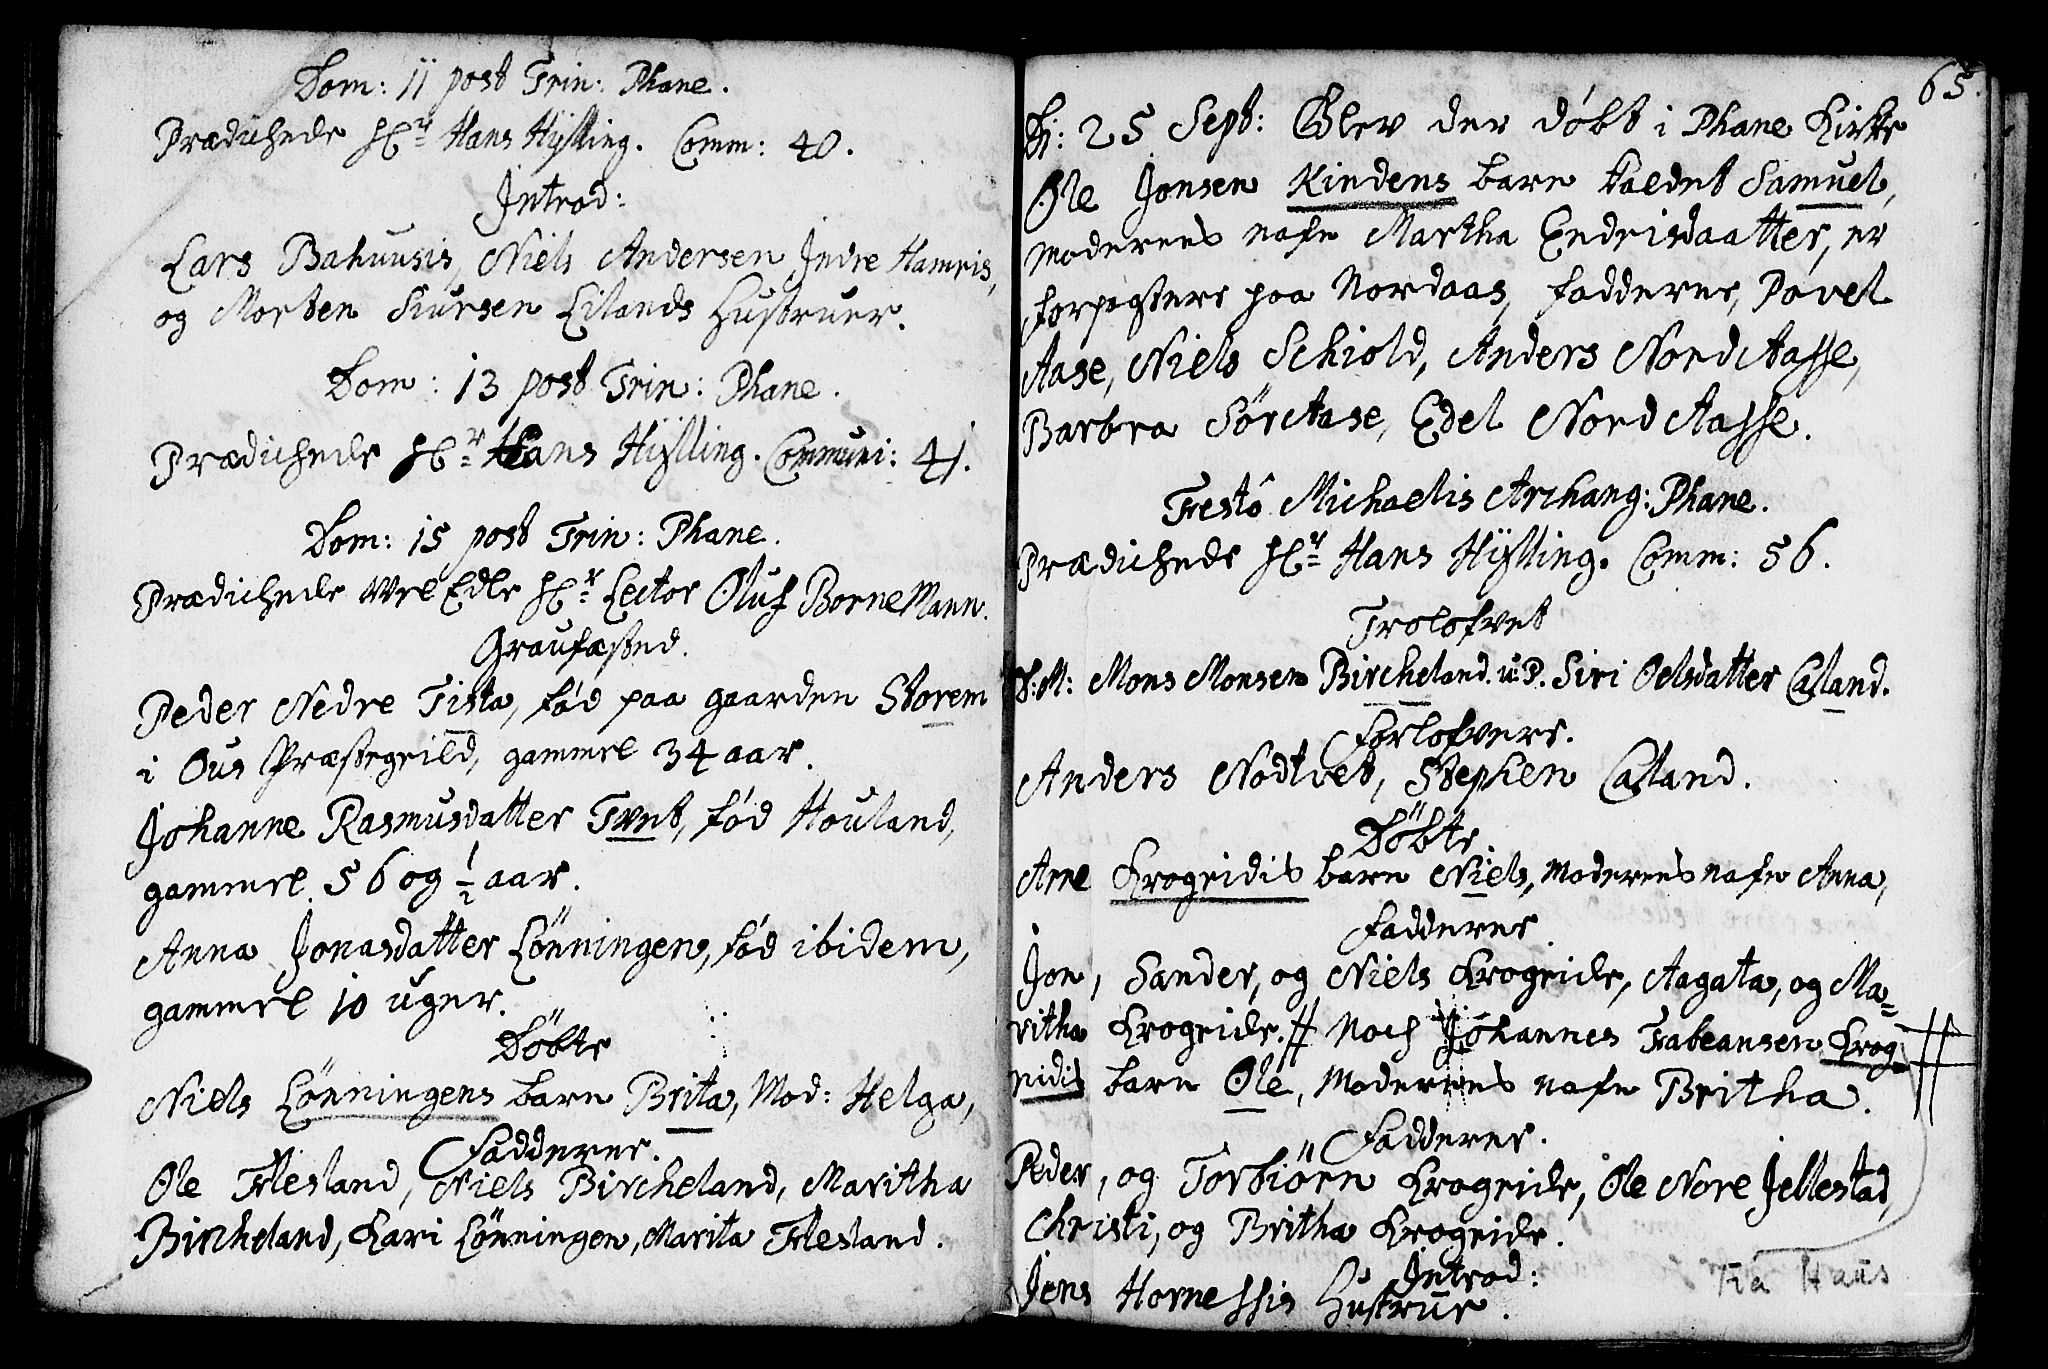 Dom: 11 post Trin: Phane.
Prædichede Hr Hans Hÿlling. Comm: 40.
Introd:
Lars Bahuusis, Niels Andersen Indre Hamris,
og Morten Siursen Lilands Hustruer.
Dom: 13 post Trin: Phane.
Prædichede Hr Hans Hÿlling. Communi: 41.
Dom: 15 post Trin: Phane.
Prædichede Vel Edle Hr Lector Oluf BorneMann.
Graufæsted.
Peder Nedre Tista, fød paa gaarden Storem
i Ous Præstegield, gammel 34 aar.
Johanne Rasmusdatter Tvet, fød Houland,
gammel 56 og ½ aar.
Anna Jonasdatter Lönningen, fød ibidem,
gammel 10 uger.
Döbte
Niels Lönningens barn Brita, Mod: Helga,
Fadderer.
Ole Flesland, Niels Bircheland, Maritha
Bircheland, Kari Lönningen, Marita Flesland.
65.
D: 25 Sept: Blev der døbt i Phane Kirke
Ole Jonsen Kindens barn kaldet Samuel,
moderens nafn Martha Endrisdaatter, er
forpagtere paa Nordaas, fadderne, Povel
Aase, Niels Schiold, Anders Nord Aasse,
Barbra Sør Aase, Edel Nord Aasse.
Festo Michaelis Archang: Phane.
Prædichede Hr Hans Hÿlling. Comm: 56.
Trolofvet
S:M: Mons Monsen Bircheland. u:P. Siri Oelsdatter Casland.
Forlofvere.
Anders Nodtvet, Stephen Casland.
Döbte.
Arne Krogeidis barn Niels, Moderens nafn Anna,
Fadderer.
Jon, Sander, og Niels Krogeide, Aagata, og Ma=
ritha Krogeide. # Noch Johannes Fabeansen Krog
eidis barn Ole, Moderens nafn Britha. #
Fadderer.
Peder, og Torbiörn Krogeide, Ole Nore Jellestad,
Christi, og Britha Krogeide.
Introd:
Jens Hornessis Hustrue.
Fia Haus